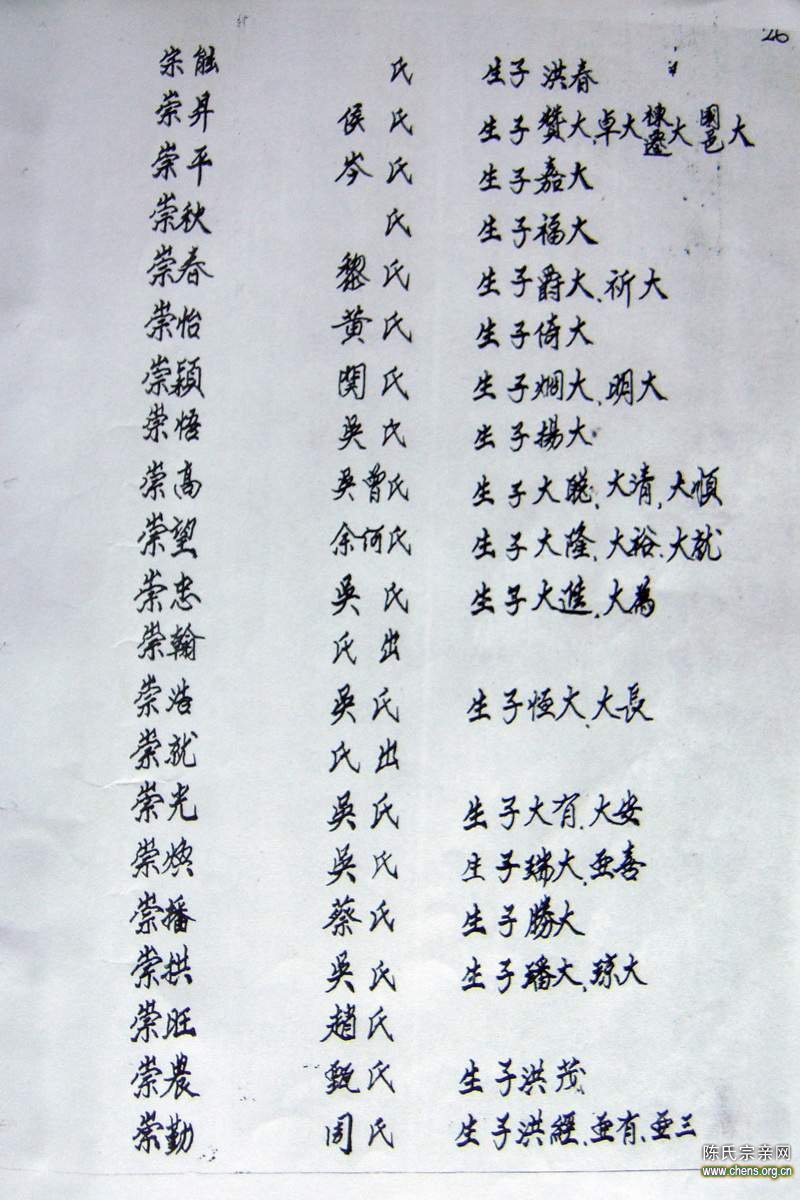 26
宗能 氏 生子洪春
崇昇 侯氏 生子贊大、卓大、棟遷大、國邑大
崇平 岑氏 生子嘉大
崇秋 氏 生子福大
崇春 黎氏 生子爵大、祈大
崇怡 黄氏 生子倚大
崇穎 関氏 生子烱大、明大
崇悟 吳氏 生子揚大
崇高 吳曾氏 生子大聪、大清、大順
崇望 余何氏 生子大隆、大裕、大就
崇忠 吳氏 生子大進、大為
崇翰 氏出
崇浩 吳氏 生子恒大、大長
崇就 氏出
崇光 吳氏 生子大有、大安
崇焕 吳氏 生子瑞大、亜喜
崇播 蔡氏 生子勝大
崇拱 吳氏 生子璠大、琼大
崇旺 趙氏
崇農 甄氏 生子洪茂
崇勤 周氏 生子洪經、亜有、亜三
陈氏宗亲网
www.chens.org.cn